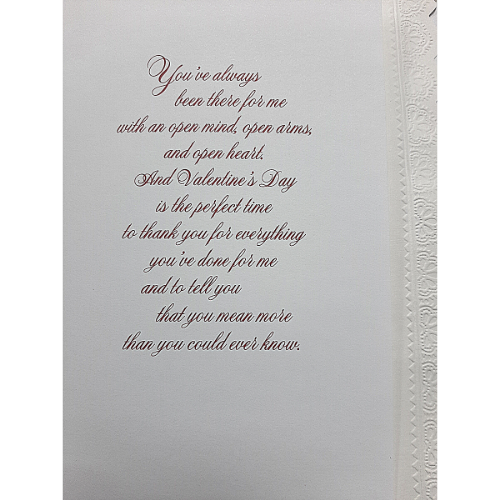 You've always
been there for me
with an open mind, open arms,
and open heart.
And Valentine's Day
is the perfect time
to thank you for everything
you've done for me
and to tell you
that you mean more
than you could ever know.